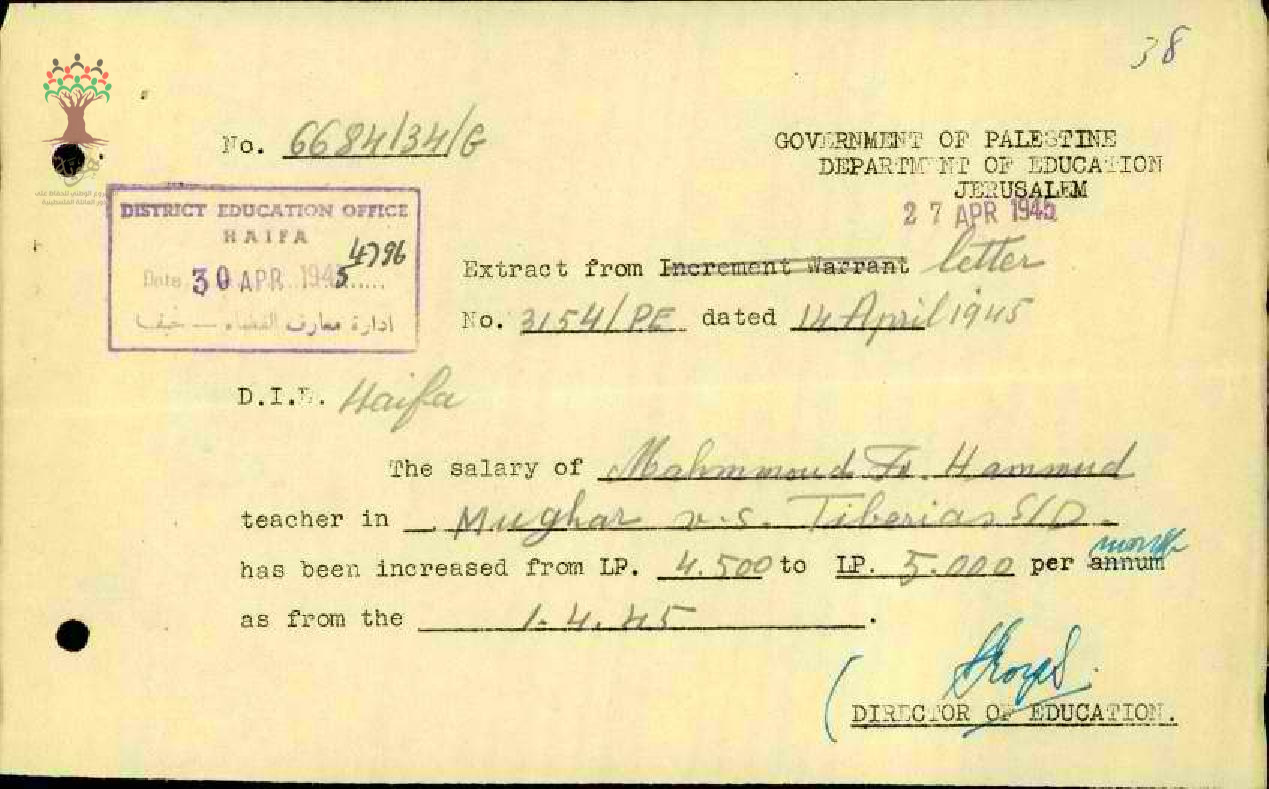 38
No. 6684/34/G
GOVERNMENT OF PALESTINE
DEPARTMENT OF EDUCATION
JERUSALEM
27 APR 1945
DISTRICT EDUCATION OFFICE
HAIFA
4796
Date 30 APR 1945
ادارة معارف القضاء — حيفا
Extract from Increment Warrant letter
No. 3154/PE dated 14 April 1945
D.I.E. Haifa
The salary of Mahmmoud Fr. Hammud
teacher in Mughar v.s. Tiberias S/D.
has been increased from LP. 4.500 to LP. 5.000 per annum month
as from the 1.4.45.
DIRECTOR OF EDUCATION.